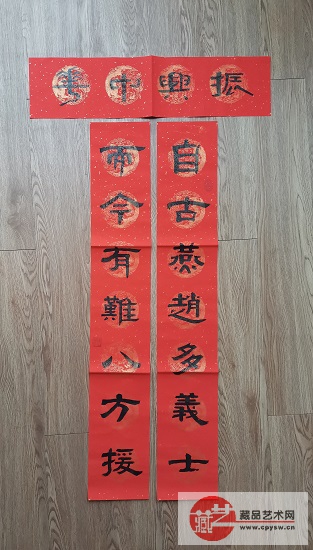 振興中華
自古燕趙多義士
而今有難八方援
藏品艺术网
www.cpysw.cn